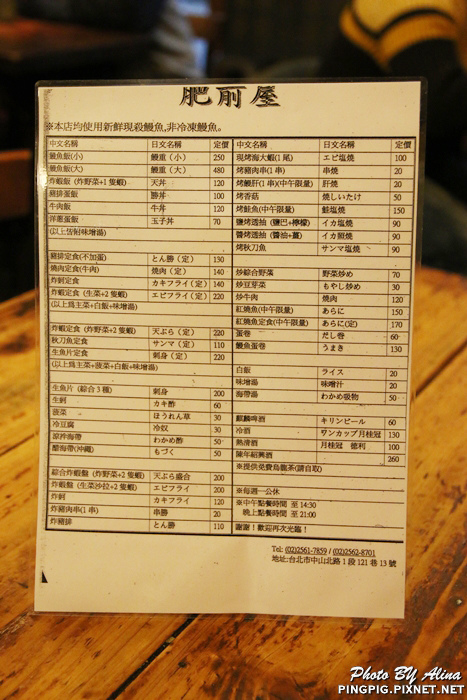 肥前屋
※本店均使用新鮮現殺鰻魚,非冷凍鰻魚。
中文名稱 日文名稱 定價
鰻魚飯(小) 鰻重（小） 250
鰻魚飯(大) 鰻重（大） 480
炸蝦飯 (炸野菜+1隻蝦) 天丼 120
豬排蛋飯 勝丼 100
牛肉飯 牛丼 120
洋蔥蛋飯 玉子丼 70
(以上皆附味增湯)
豬排定食(不加蛋) とん勝（定） 130
燒肉定食(牛肉) 燒肉（定） 140
炸蚵定食 カキフライ（定） 140
炸蝦定食 (生菜+2隻蝦) エビフライ（定） 220
(以上為主菜+白飯+味增湯)
炸蝦定食 (炸野菜+2隻蝦) 天ぷら（定） 200
秋刀魚定食 サンマ（定） 110
生魚片定食 刺身（定） 220
(以上為主菜+菠菜+白飯+味增湯)
生魚片 (綜合3種) 刺身 200
生蚵 カキ酢 60
菠菜 ほうれん草 30
冷豆腐 冷奴 30
涼拌海帶 わかめ酢 50
醋海帶(沖繩) もづく 50
綜合炸蝦盤 (炸野菜+2隻蝦) 天ぷら盛合 200
炸蝦盤 (生菜沙拉+2隻蝦) エビフライ 200
炸蚵 カキフライ 120
炸豬肉串(1串) 串勝 20
炸豬排 とん勝 110
中文名稱 日文名稱 定價
現烤海大蝦(1尾) エビ塩焼 100
烤豬肉串(1串) 串燒 20
烤鰻肝(1串)(中午限量) 肝燒 20
烤香菇 燒しいたけ 50
烤鮭魚(中午限量) 鮭塩燒 150
鹽烤透抽 (鹽巴+檸檬) イカ塩燒 90
醬烤透抽 (醬油+薑) イカ照燒 90
烤秋刀魚 サンマ塩燒 90
炒綜合野菜 野菜炒め 70
炒豆芽菜 もやし炒め 30
炒牛肉 燒肉 120
紅燒魚(中午限量) あらに 150
紅燒魚定食(中午限量) あらに(定) 170
蛋卷 だし卷 60
鰻魚蛋卷 うまき 130
白飯 ライス 20
味增湯 味噌汁 20
海帶湯 わかめ吸物 50
麒麟啤酒 キリンビール 60
冷酒 ワンカップ月桂冠 130
熱清酒 月桂冠 德利 100
陳年紹興酒 260
※提供免費烏龍茶(請自取)
※每週一公休
※中午點餐時間 至 14:30
晚上點餐時間 至 21:00
謝謝！歡迎再次光臨！
Tel: (02)2561-7859 / (02)2562-8701
地址:台北市中山北路1段121巷13號
Photo BY Alina
PINGPIG.PIXNET.NET